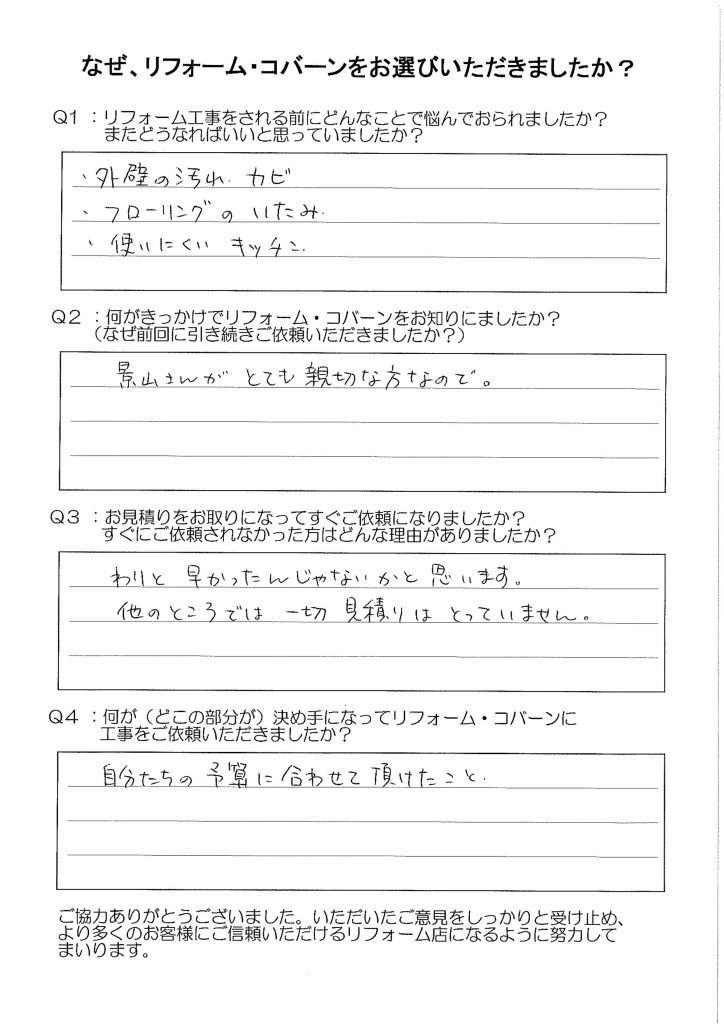 なぜ、リフォーム・コバーンをお選びいただきましたか？
Q1：リフォーム工事をされる前にどんなことで悩んでおられましたか？
またどうなればいいと思っていましたか？
・外壁の汚れ．カビ
・フローリングの いたみ．
・使いにくい キッチン．
Q2：何がきっかけでリフォーム・コバーンをお知りにましたか？
（なぜ前回に引き続きご依頼いただきましたか？）
景山さんが とても 親切な方なので。
Q3：お見積りをお取りになってすぐご依頼になりましたか？
すぐにご依頼されなかった方はどんな理由がありましたか？
わりと 早かったんじゃないかと 思います。
他のところでは 一切 見積りは とっていません。
Q4：何が（どこの部分が）決め手になってリフォーム・コバーンに
工事をご依頼いただきましたか？
自分たちの 予算に 合わせて 頂けたこと．
ご協力ありがとうございました。いただいたご意見をしっかりと受け止め、
より多くのお客様にご信頼いただけるリフォーム店になるように努力して
まいります。